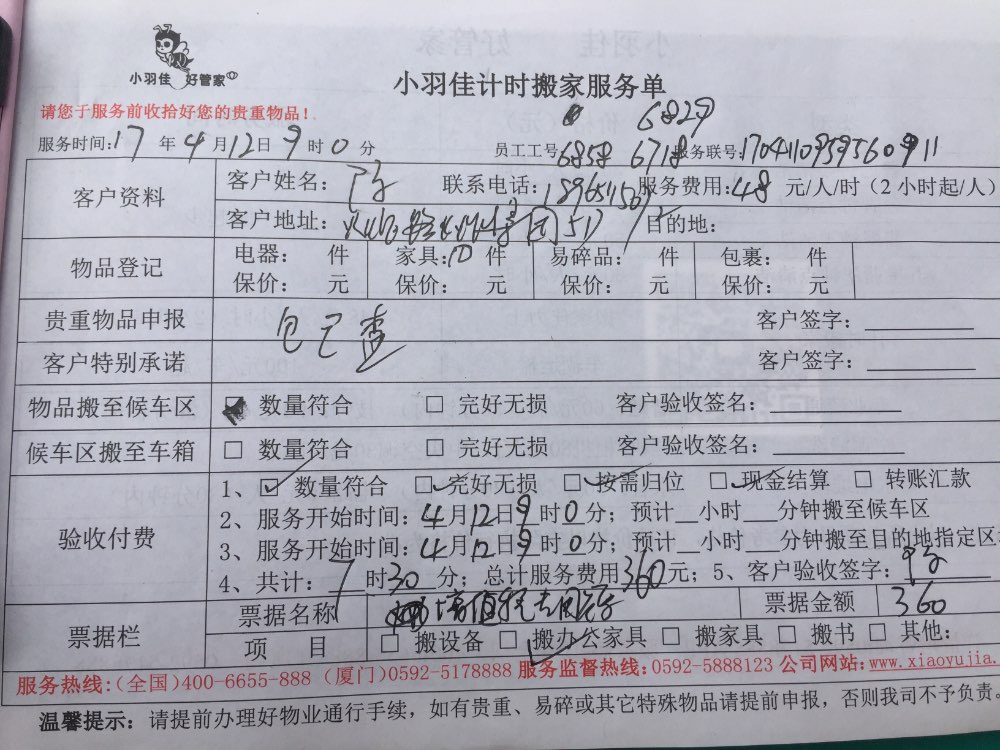 小羽佳 好管家
小羽佳计时搬家服务单
请您于服务前收拾好您的贵重物品！
6829
服务时间:17年4月12日9时0分 员工工号:6858 6718 服务联号:
客户资料 客户姓名： 联系电话: 服务费用:48元/人/时（2小时起/人）
客户地址： 目的地：
物品登记 电器： 件 家具:10件 易碎品： 件 包裹： 件
保价： 元 保价： 元 保价： 元 保价： 元
贵重物品申报 包已查 客户签字：
客户特别承诺 客户签字：
物品搬至候车区 数量符合 完好无损 客户验收签名：
候车区搬至车箱 数量符合 完好无损 客户验收签名：
验收付费 1、数量符合 完好无损 按需归位 现金结算 转账汇款
2、服务开始时间:4月12日9时0分；预计 小时 分钟搬至候车区
3、服务开始时间:4月12日9时0分；预计 小时 分钟搬至目的地指定区
4、共计:7时30分；总计服务费用360元；5、客户验收签字:
票据栏 票据名称 票据金额 360
项 目 搬设备 搬办公家具 搬家具 搬书 其他:
服务热线:(全国)400-6655-888 (厦门)0592-5178888 服务监督热线:0592-5888123 公司网站:www.xiaoyujia.
温馨提示：请提前办理好物业通行手续，如有贵重、易碎或其它特殊物品请提前申报，否则我司不予负责。